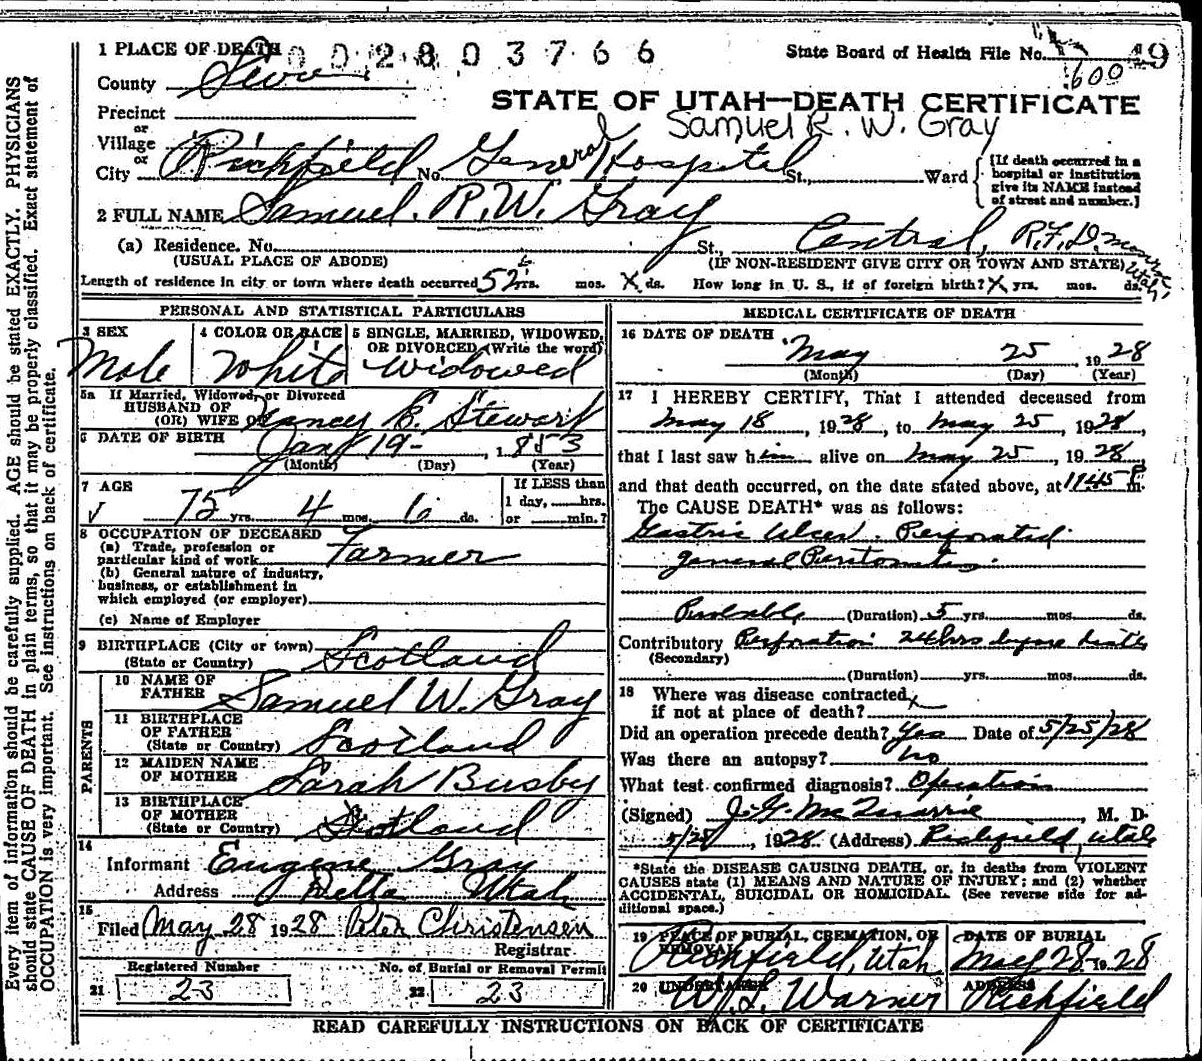 1 PLACE OF DEATH 0 0 2 8 0 3 7 6 6 State Board of Health File No. 49
600
County Sevier
STATE OF UTAH—DEATH CERTIFICATE
Precinct
Samuel R. W. Gray
or
Village
or
City Richfield No. General Hospital St., Ward
[If death occurred in a hospital or institution give its NAME instead of street and number.]
2 FULL NAME Samuel. R. W. Gray
(a) Residence. No. St., Central, R.F.D. Monroe Utah
(USUAL PLACE OF ABODE) (IF NON-RESIDENT GIVE CITY OR TOWN AND STATE)
Length of residence in city or town where death occurred 52 yrs. mos. X ds. How long in U. S., if of foreign birth? X yrs. mos. ds.
PERSONAL AND STATISTICAL PARTICULARS
3 SEX 4 COLOR OR RACE 5 SINGLE, MARRIED, WIDOWED,
OR DIVORCED (Write the word)
Male White Widowed
5a If Married, Widowed, or Divorced
HUSBAND OF
(OR) WIFE OF Nancy E. Stewart
6 DATE OF BIRTH Jan 19- 1853
(Month) (Day) (Year)
7 AGE If LESS than
1 day, hrs.
75 yrs. 4 mos. 6 ds. or min.?
8 OCCUPATION OF DECEASED
(a) Trade, profession or
particular kind of work Farmer
(b) General nature of industry,
business, or establishment in
which employed (or employer)
(c) Name of Employer
9 BIRTHPLACE (City or town)
(State or Country) Scotland
PARENTS
10 NAME OF
FATHER Samuel W. Gray
11 BIRTHPLACE
OF FATHER
(State or Country) Scotland
12 MAIDEN NAME
OF MOTHER Sarah Busby
13 BIRTHPLACE
OF MOTHER
(State or Country) Scotland
14
Informant Eugene Gray
Address Delta Utah
15
Filed May 28 1928 Peter Christensen
Registrar
Registered Number No. of Burial or Removal Permit
21 23 22 23
MEDICAL CERTIFICATE OF DEATH
16 DATE OF DEATH
May 25, 1928
(Month) (Day) (Year)
17 I HEREBY CERTIFY, That I attended deceased from
May 18, 1928, to May 25, 1928,
that I last saw him alive on May 25, 1928
and that death occurred, on the date stated above, at 11:45 P m.
The CAUSE DEATH* was as follows:
Gastric Ulcer. Perforated.
general Peritonitis.
Probable (Duration) 5 yrs. mos. ds.
Contributory Perforation 24 hrs before death
(Secondary)
(Duration) yrs. mos. ds.
18 Where was disease contracted
if not at place of death? X
Did an operation precede death? Yes Date of 5/25/28
Was there an autopsy? no
What test confirmed diagnosis? Operation
(Signed) J. G. McQuarrie, M. D.
1928 (Address) Richfield, Utah
*State the DISEASE CAUSING DEATH, or, in deaths from VIOLENT
CAUSES state (1) MEANS AND NATURE OF INJURY; and (2) whether
ACCIDENTAL, SUICIDAL OR HOMICIDAL. (See reverse side for ad-
ditional space.)
19 PLACE OF BURIAL, CREMATION, OR DATE OF BURIAL
REMOVAL
Richfield, Utah May 28 1928
20 UNDERTAKER ADDRESS
W. L. Warner Richfield
READ CAREFULLY INSTRUCTIONS ON BACK OF CERTIFICATE
Every item of information should be carefully supplied. AGE should be stated EXACTLY. PHYSICIANS
should state CAUSE OF DEATH in plain terms, so that it may be properly classified. Exact statement of
OCCUPATION is very important. See instructions on back of certificate.